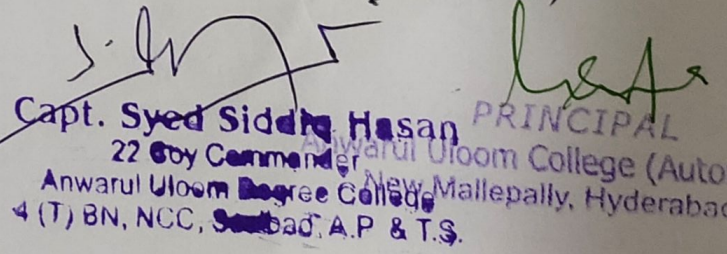 Capt. Syed Siddiq Hasan
22 Coy Commander
Anwarul Uloom Degree College
4 (T) BN, NCC, A.P & T.S.
PRINCIPAL
Anwarul Uloom College (Auto
New Mallepally, Hyderabad